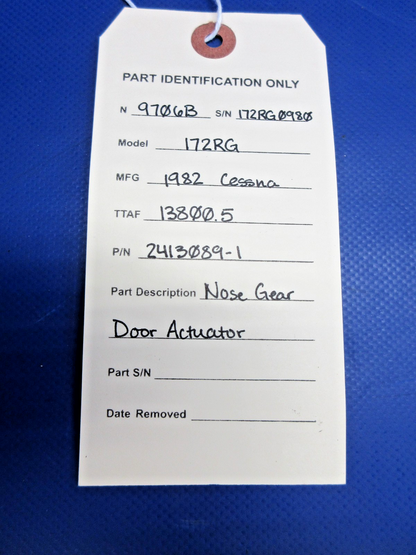 PART IDENTIFICATION ONLY
N 9706B S/N 172RG0980
Model 172RG
MFG 1982 Cessna
TTAF 13800.5
P/N 2413089-1
Part Description Nose Gear
Door Actuator
Part S/N
Date Removed